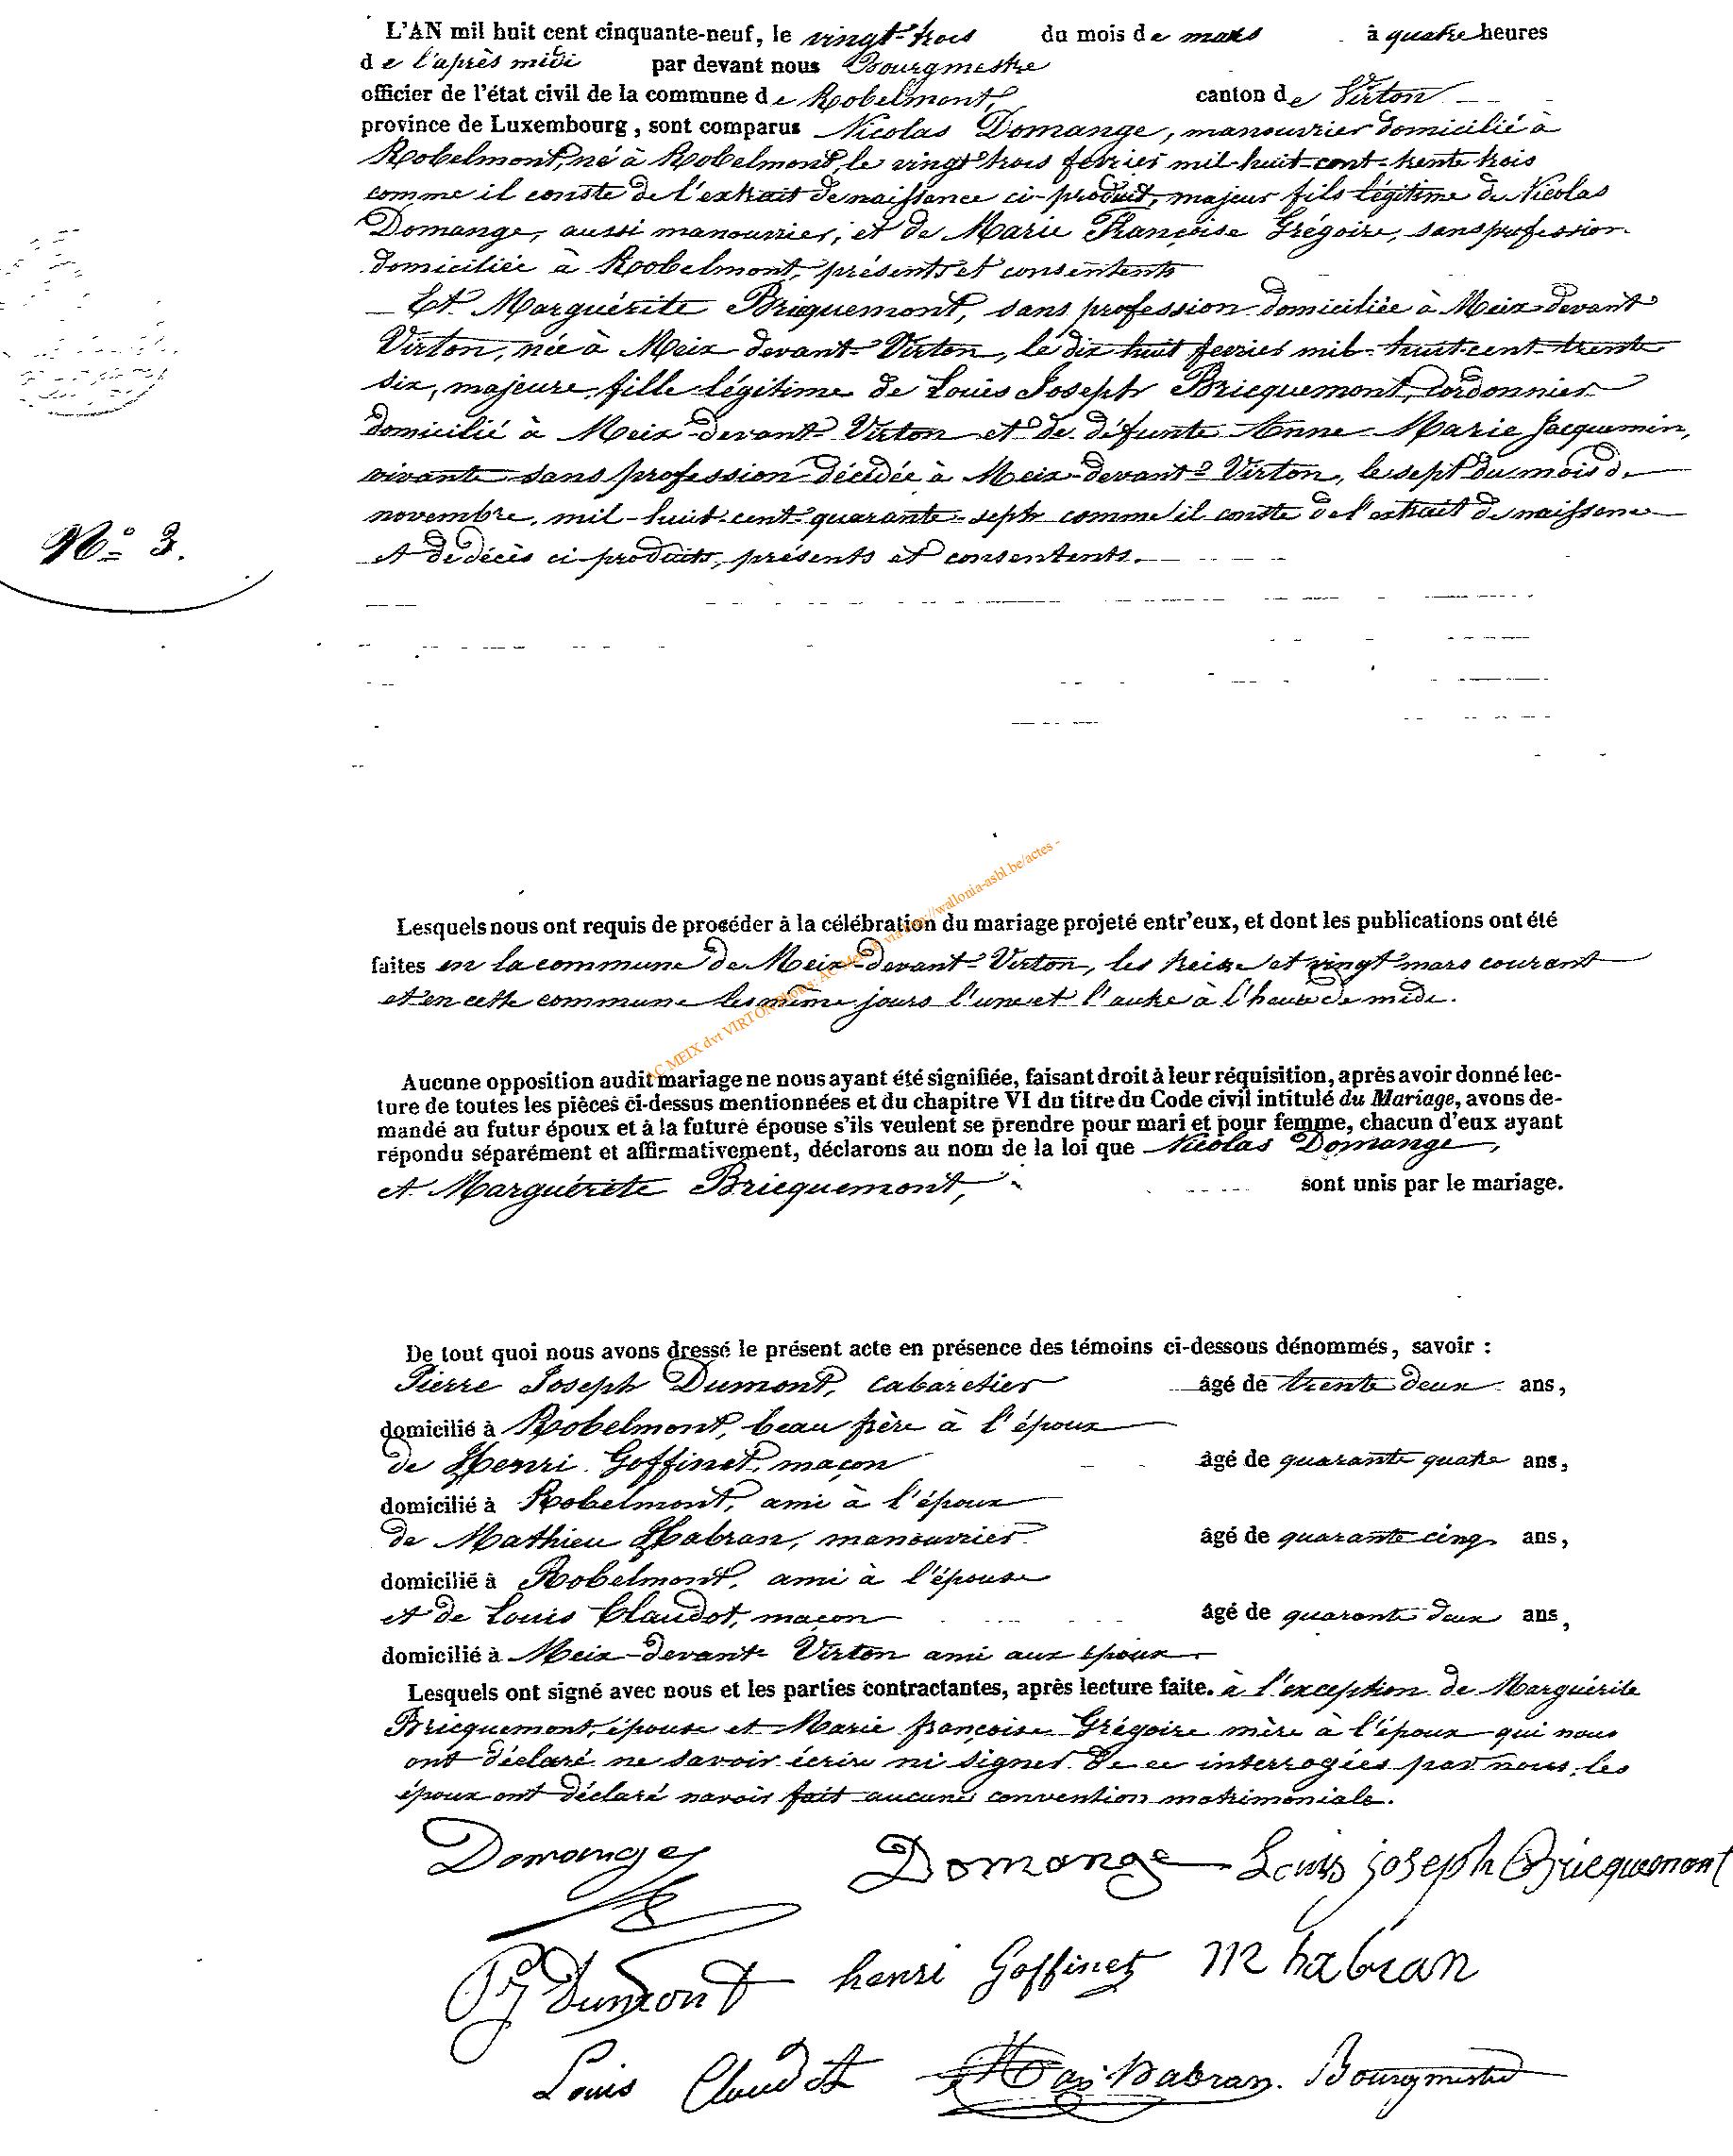 L'AN mil huit cent cinquante-neuf, le vingt-trois du mois de mars à quatre heures
de l'après midi par devant nous Bourgmestre
officier de l'état civil de la commune de Robelmont, canton de Virton
province de Luxembourg, sont comparus Nicolas Domange, manouvrier domicilié à
Robelmont, né à Robelmont, le vingt trois fevrier mil-huit-cent-trente trois
comme il conste de l'extrait de naissance ci-produit, majeur fils légitime de Nicolas
Domange, aussi manouvrier, et de Marie Françoise Grégoire, sans profession
domiciliée à Robelmont, présents et consentents
Et Marguérite Bricquemont, sans profession domiciliée à Meix-devant
Virton, née à Meix-devant-Virton, le dix huit fevrier mil-huit-cent-trente
six, majeure fille légitime de Louis Joseph Bricquemont, Cordonnier
domicilié à Meix-devant-Virton et de défunte Anne-Marie Jacquemin,
vivante sans profession décédée à Meix-devant-Virton, le sept du mois de
novembre mil-huit-cent-quarante-sept comme il conste de l'extrait de naissance
N° 3.
et de décès ci-produits, présents et consentents.
AC MEIX dvt VIRTON wallonia-asbl.be/actes -
Lesquels nous ont requis de procéder à la célébration du mariage projeté entr'eux, et dont les publications ont été
faites en la commune de Meix-devant-Virton, les treize et vingt mars courant
et en cette commune les même jours l'une et l'autre à l'heure de midi.
Aucune opposition audit mariage ne nous ayant été signifiée, faisant droit à leur réquisition, après avoir donné lec-
ture de toutes les pièces ci-dessus mentionnées et du chapitre VI du titre du Code civil intitulé du Mariage, avons de-
mandé au futur époux et à la future épouse s'ils veulent se prendre pour mari et pour femme, chacun d'eux ayant
répondu séparément et affirmativement, déclarons au nom de la loi que Nicolas Domange,
et Marguérite Bricquemont, sont unis par le mariage.
De tout quoi nous avons dressé le présent acte en présence des témoins ci-dessous dénommés, savoir :
Pierre Joseph Dumont, cabaretier âgé de trente deux ans,
domicilié à Robelmont, beau frère à l'époux
de Henri Goffinet, maçon âgé de quarante quatre ans,
domicilié à Robelmont, ami à l'époux
de Mathieu Habran, manouvrier âgé de quarante cinq ans,
domicilié à Robelmont, ami à l'épouse
et de Louis Claudot, maçon âgé de quarante deux ans,
domicilié à Meix-devant Virton ami aux époux
Lesquels ont signé avec nous et les parties contractantes, après lecture faite. à l'exception de Marguérite
Bricquemont, épouse et Marie françoise Grégoire mère à l'époux qui nous
ont déclaré ne savoir écrire ni signer de ce interrogées par nous, les
époux ont déclaré navoir fait aucune convention matrimoniale.
Domange Domange Louis joseph Bricquemont
PJ Dumont henri Goffinet M habran
Louis Claudot habran. Bourgmestre